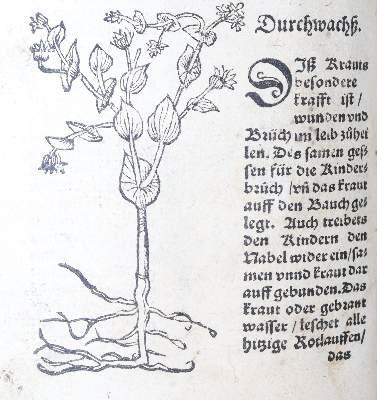 Durchwachß.
Diß Krauts
besondere
krafft ist /
wunden vnd
Brüch im leib zůhei
len. Des samen ges
sen für die Kinders
brüch / vñ das kraut
auff den Bauch ges
legt. Auch treibets
den Kindern den
Nabel wider ein / sa⸗
men vnnd kraut dar
auff gebunden. Das
kraut oder gebrant
wasser / leschet alle
hitzige Rotlauffen /
das